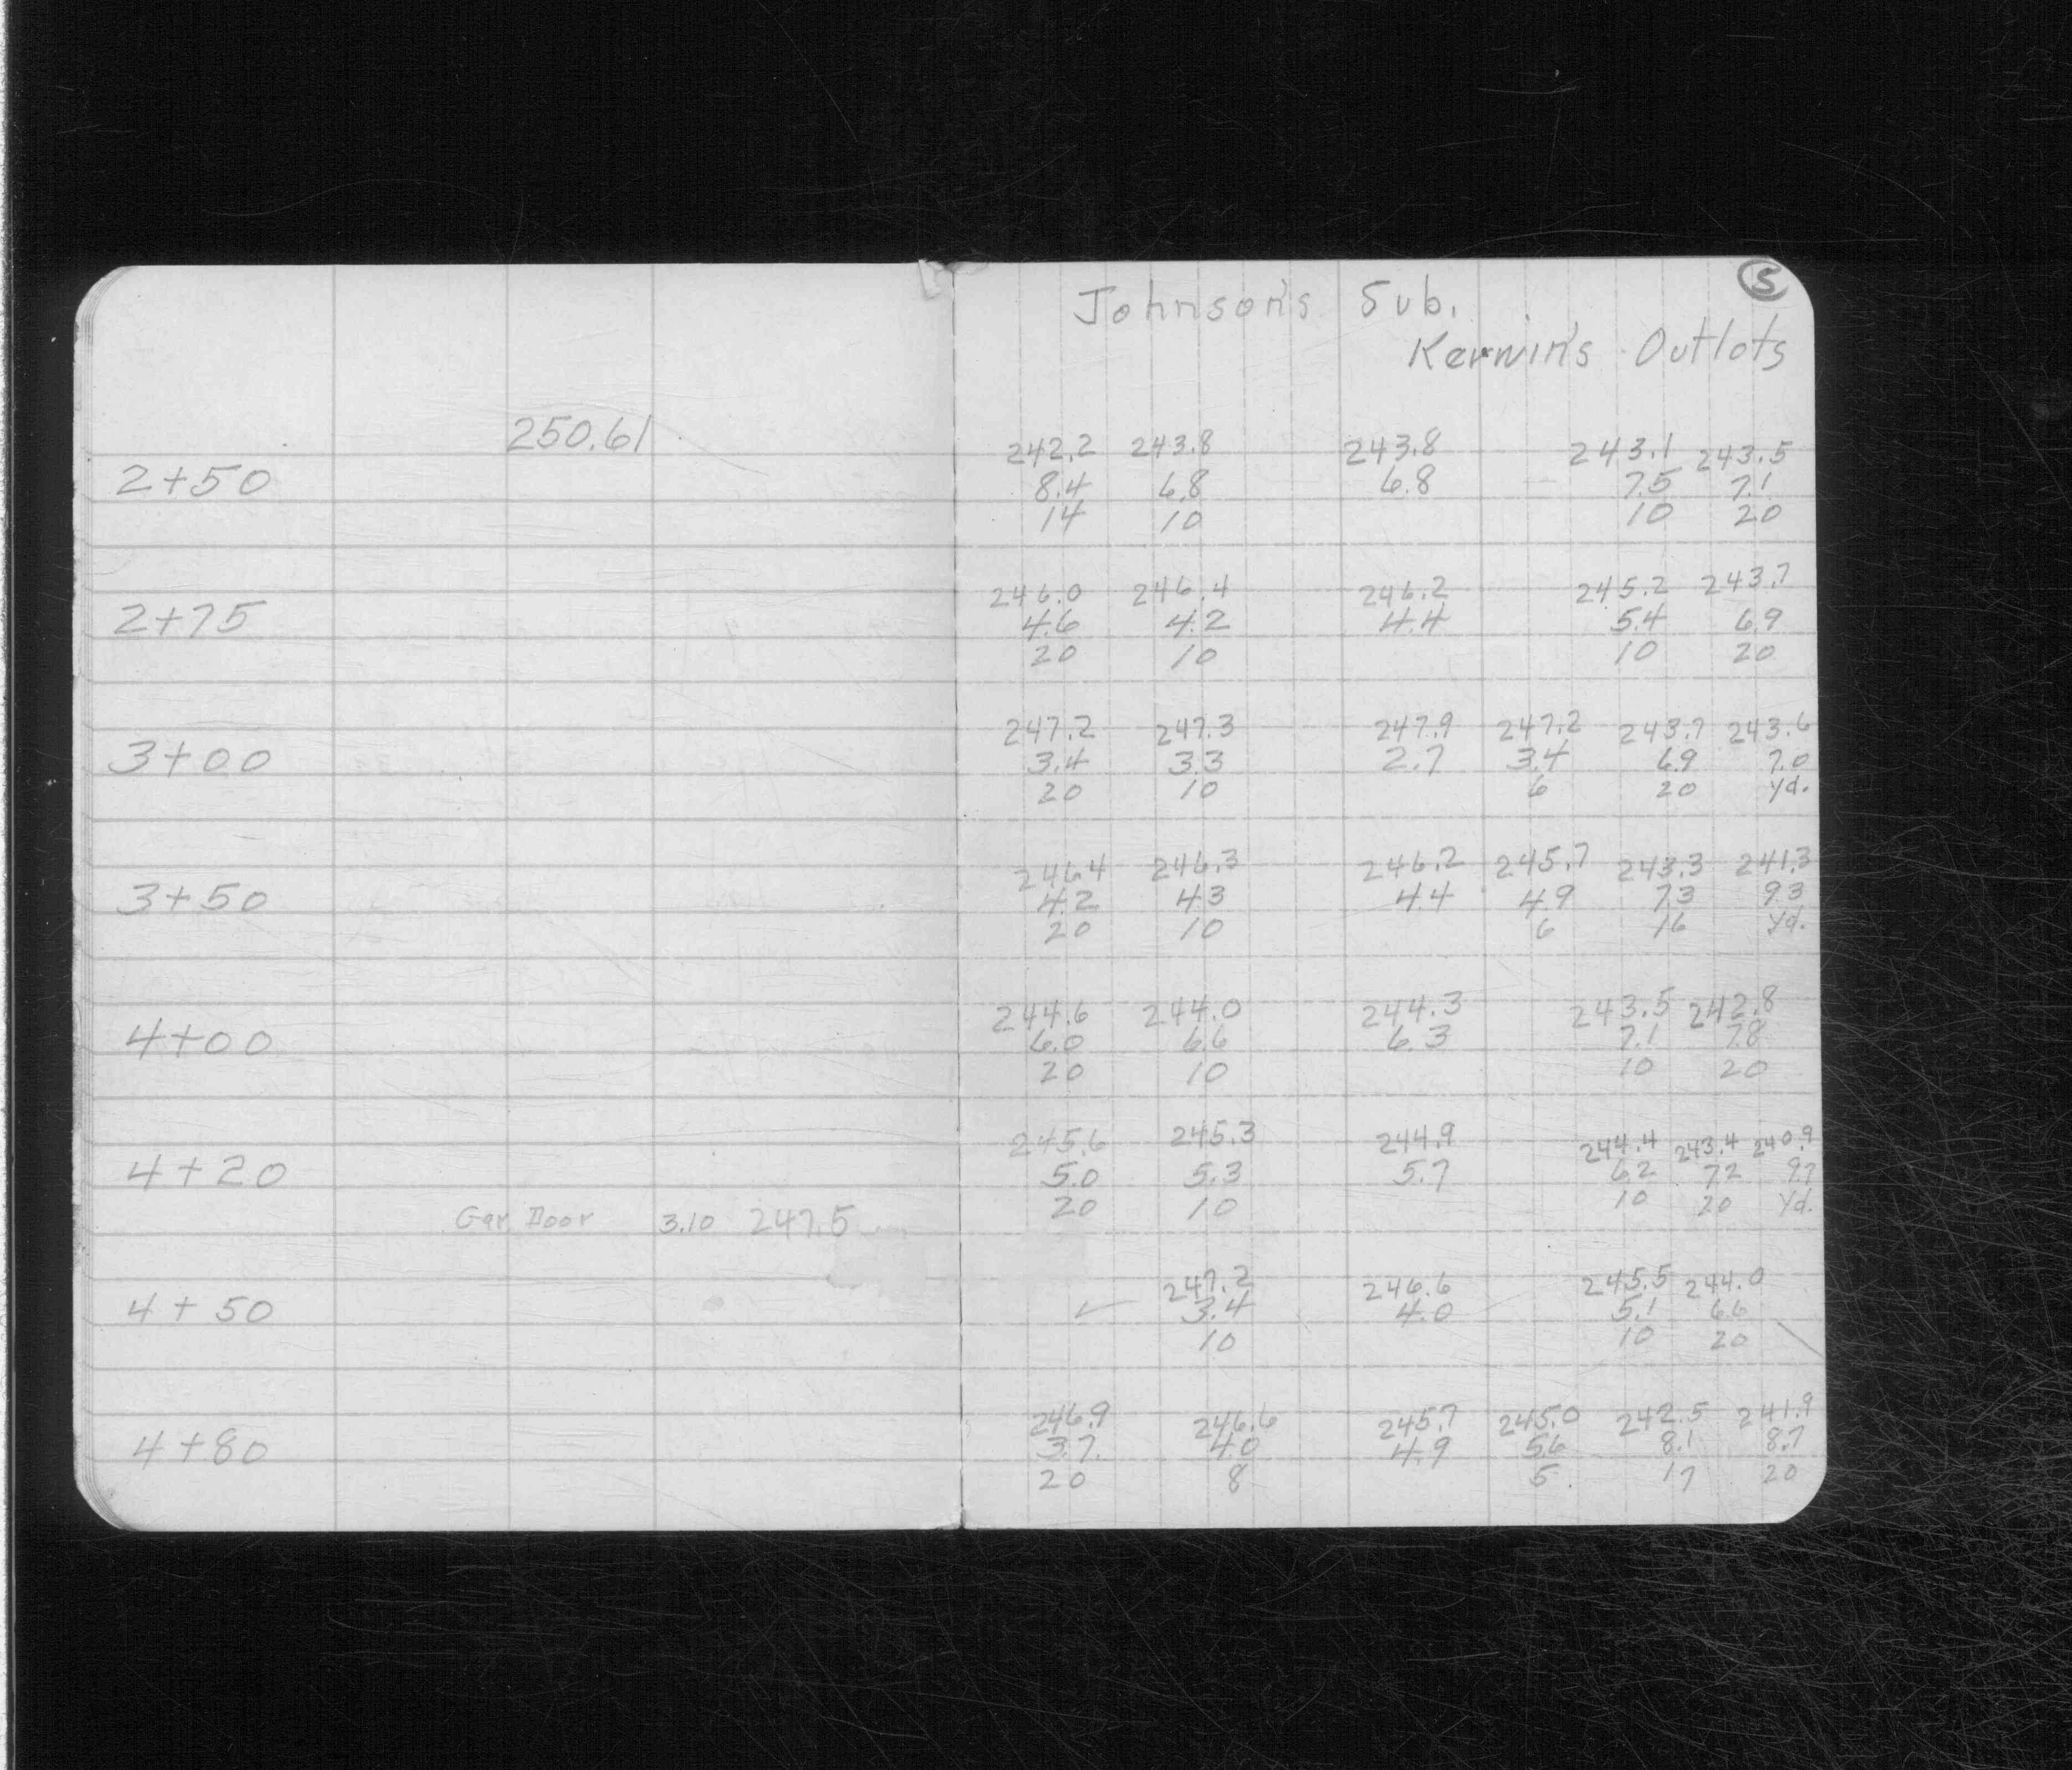 5
Johnson's Sub.
Kerwin's Outlots
250.61
242.2 243.8 243.8 243.1 243.5
2+50 8.4 6.8 6.8 7.5 7.1
14 10 10 20
246.0 246.4 246.2 245.2 243.7
2+75 4.6 4.2 4.4 5.4 6.9
20 10 10 20
247.2 247.3 247.9 247.2 243.7 243.6
3+00 3.4 3.3 2.7 3.4 6.9 7.0
20 10 6 20 yd.
246.4 246.3 246.2 245.7 243.3 241.3
3+50 4.2 4.3 4.4 4.9 7.3 9.3
20 10 6 16 yd.
244.6 244.0 244.3 243.5 242.8
4+00 6.0 6.6 6.3 7.1 7.8
20 10 10 20
245.6 245.3 244.9 244.4 243.4 240.9
4+20 5.0 5.3 5.7 6.2 7.2 9.7
20 10 10 20 yd.
Gar Door 3.10 247.5
247.2 246.6 245.5 244.0
4+50 ✓ 3.4 4.0 5.1 6.6
10 10 20
246.9 246.6 245.7 245.0 242.5 241.9
4+80 3.7 4.0 4.9 5.6 8.1 8.7
20 8 5 17 20